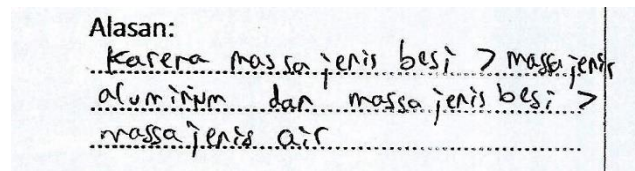 Alasan:
Karena massa jenis besi > massa jenis
aluminium dan massa jenis besi >
massa jenis air